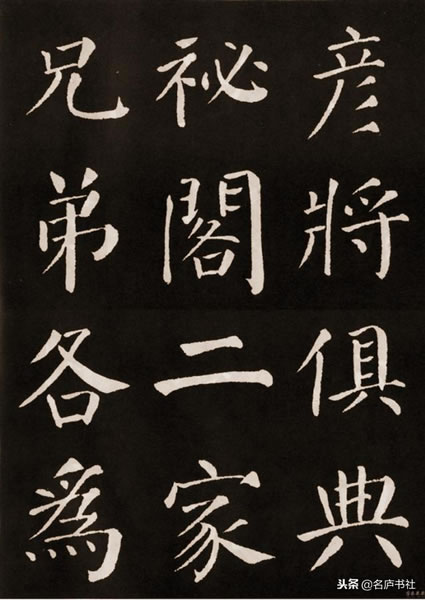 彦將俱典
祕閣二家
兄弟各爲
头条@名庐书社